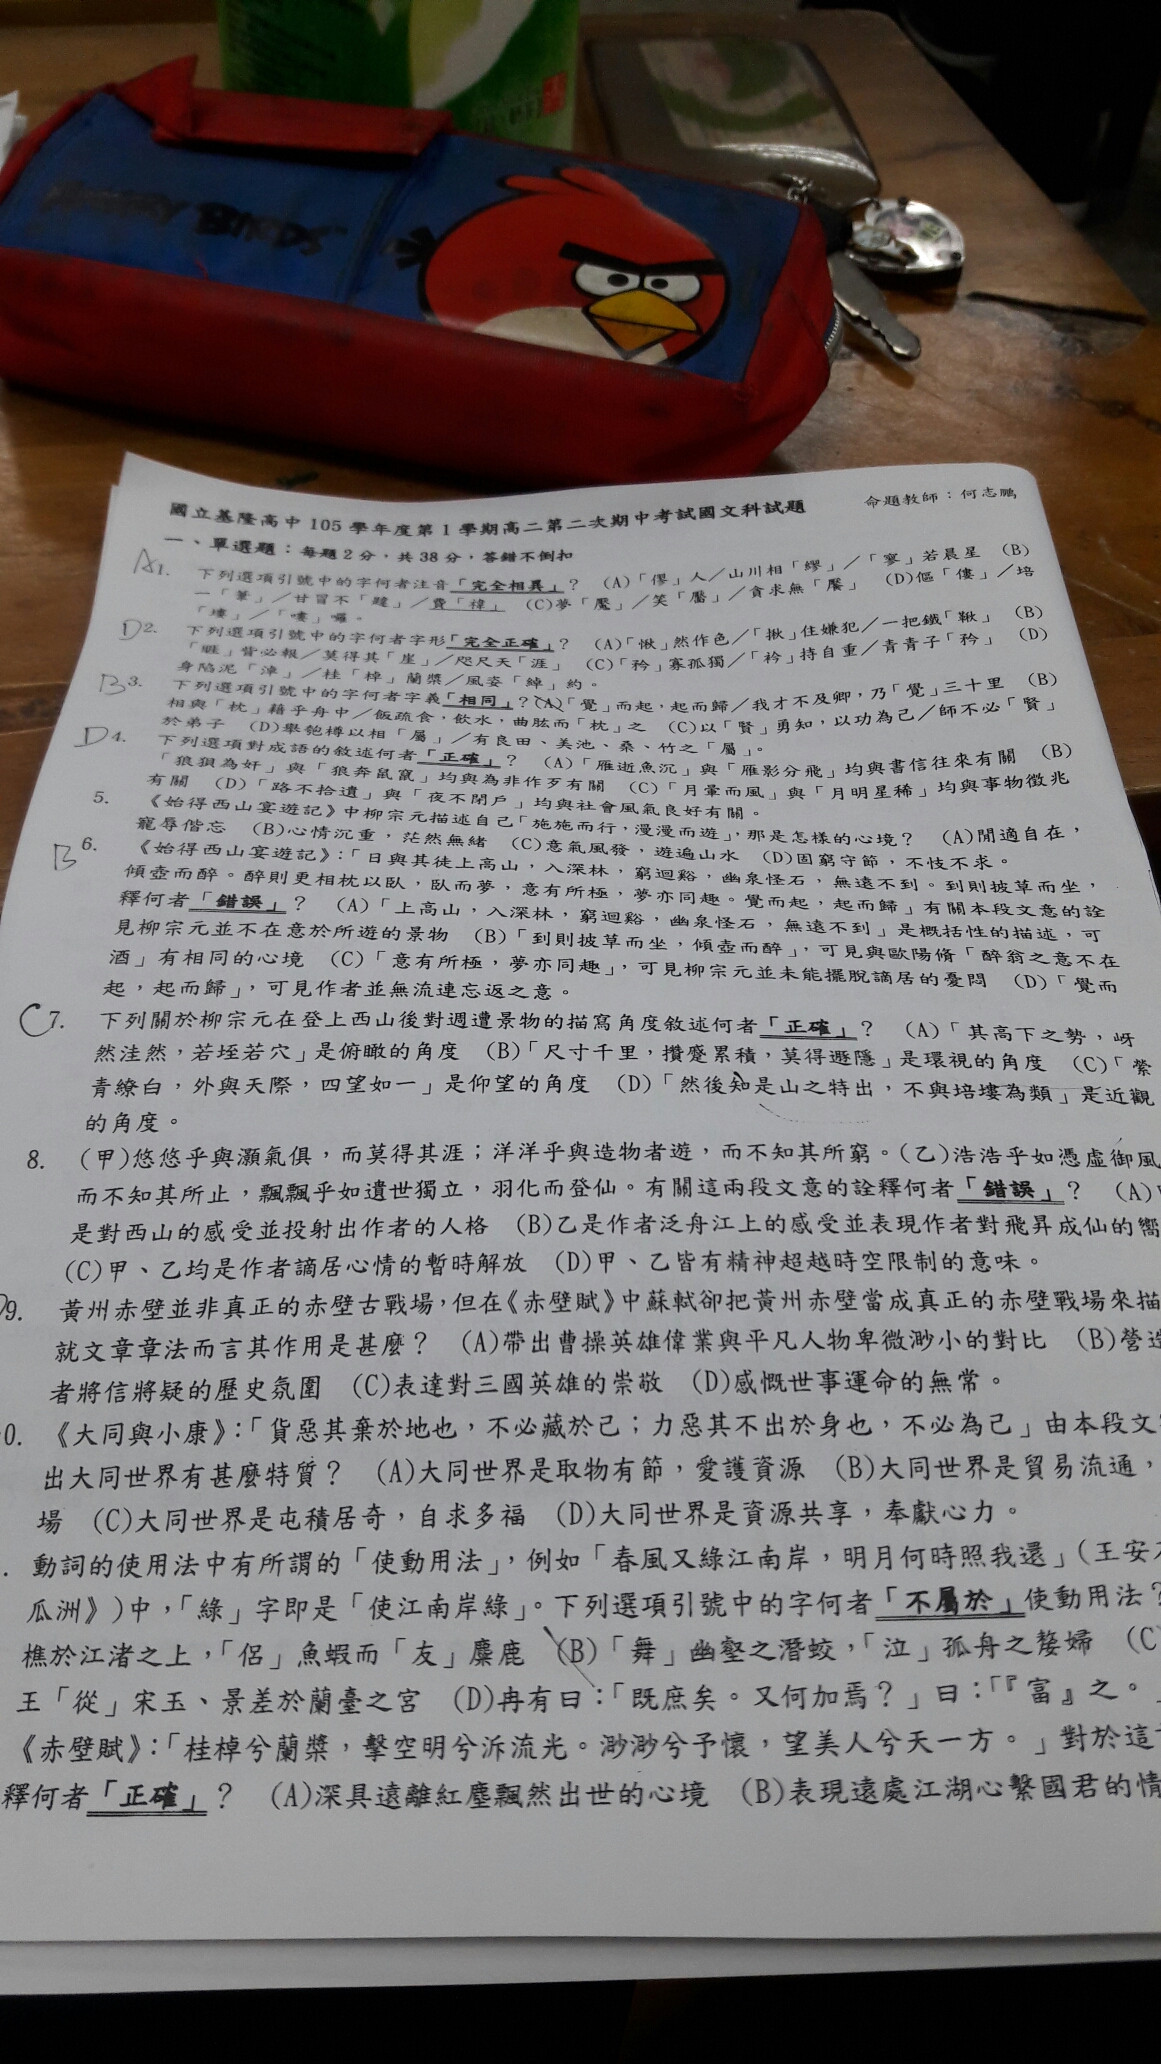 國立基隆高中105學年度第1學期高二第二次期中考試國文科試題
命題教師：何志鵬
一、單選題：每題2分，共38分，答錯不倒扣
A 1. 下列選項引號中的字何者注音「完全相異」？ (A)「僇」人／山川相「繆」／「寥」若晨星 (B)
一「篳」／甘冒不「韙」／費「禕」 (C)夢「魘」／笑「靨」／貪求無「饜」 (D)傴「僂」／培
「塿」／「嘍」囉。
D 2. 下列選項引號中的字何者字形「完全正確」？ (A)「愀」然作色／「揪」住嫌犯／一把鐵「鞦」 (B)
「睚」眥必報／莫得其「崖」／咫尺天「涯」 (C)「矜」寡孤獨／「衿」持自重／青青子「矜」 (D)
身陷泥「淖」／桂「棹」蘭槳／風姿「綽」約。
B 3. 下列選項引號中的字何者字義「相同」？(A)「覺」而起，起而歸／我才不及卿，乃「覺」三十里 (B)
相與「枕」藉乎舟中／飯疏食，飲水，曲肱而「枕」之 (C)以「賢」勇知，以功為己／師不必「賢」
於弟子 (D)舉匏樽以相「屬」／有良田、美池、桑、竹之「屬」。
D 4. 下列選項對成語的敘述何者「正確」？ (A)「雁逝魚沉」與「雁影分飛」均與書信往來有關 (B)
「狼狽為奸」與「狼奔鼠竄」均與為非作歹有關 (C)「月暈而風」與「月明星稀」均與事物徵兆
有關 (D)「路不拾遺」與「夜不閉戶」均與社會風氣良好有關。
5. 《始得西山宴遊記》中柳宗元描述自己「施施而行，漫漫而遊」，那是怎樣的心境？ (A)閒適自在，
寵辱偕忘 (B)心情沉重，茫然無緒 (C)意氣風發，遊遍山水 (D)固窮守節，不忮不求。
B 6. 《始得西山宴遊記》：「日與其徒上高山，入深林，窮迴谿，幽泉怪石，無遠不到。到則披草而坐，
傾壺而醉。醉則更相枕以臥，臥而夢，意有所極，夢亦同趣。覺而起，起而歸」有關本段文意的詮
釋何者「錯誤」？ (A)「上高山，入深林，窮迴谿，幽泉怪石，無遠不到」是概括性的描述，可
見柳宗元並不在意於所遊的景物 (B)「到則披草而坐，傾壺而醉」，可見與歐陽脩「醉翁之意不在
酒」有相同的心境 (C)「意有所極，夢亦同趣」，可見柳宗元並未能擺脫謫居的憂悶 (D)「覺而
起，起而歸」，可見作者並無流連忘返之意。
C 7. 下列關於柳宗元在登上西山後對週遭景物的描寫角度敘述何者「正確」？ (A)「其高下之勢，岈
然洼然，若垤若穴」是俯瞰的角度 (B)「尺寸千里，攢蹙累積，莫得遯隱」是環視的角度 (C)「縈
青繚白，外與天際，四望如一」是仰望的角度 (D)「然後知是山之特出，不與培塿為類」是近觀
的角度。
8. (甲)悠悠乎與灝氣俱，而莫得其涯；洋洋乎與造物者遊，而不知其所窮。(乙)浩浩乎如憑虛御風
而不知其所止，飄飄乎如遺世獨立，羽化而登仙。有關這兩段文意的詮釋何者「錯誤」？ (A)
是對西山的感受並投射出作者的人格 (B)乙是作者泛舟江上的感受並表現作者對飛昇成仙的嚮
(C)甲、乙均是作者謫居心情的暫時解放 (D)甲、乙皆有精神超越時空限制的意味。
9. 黃州赤壁並非真正的赤壁古戰場，但在《赤壁賦》中蘇軾卻把黃州赤壁當成真正的赤壁戰場來描
就文章章法而言其作用是甚麼？ (A)帶出曹操英雄偉業與平凡人物卑微渺小的對比 (B)營造
者將信將疑的歷史氛圍 (C)表達對三國英雄的崇敬 (D)感慨世事運命的無常。
0. 《大同與小康》：「貨惡其棄於地也，不必藏於己；力惡其不出於身也，不必為己」由本段文
出大同世界有甚麼特質？ (A)大同世界是取物有節，愛護資源 (B)大同世界是貿易流通，
場 (C)大同世界是屯積居奇，自求多福 (D)大同世界是資源共享，奉獻心力。
. 動詞的使用法中有所謂的「使動用法」，例如「春風又綠江南岸，明月何時照我還」(王安
瓜洲》)中，「綠」字即是「使江南岸綠」。下列選項引號中的字何者「不屬於」使動用法？
樵於江渚之上，「侶」魚蝦而「友」麋鹿 (B)「舞」幽壑之潛蛟，「泣」孤舟之嫠婦 (C
王「從」宋玉、景差於蘭臺之宮 (D)冉有曰：「既庶矣。又何加焉？」曰：「『富』之。
《赤壁賦》：「桂棹兮蘭槳，擊空明兮泝流光。渺渺兮予懷，望美人兮天一方。」對於這
釋何者「正確」？ (A)深具遠離紅塵飄然出世的心境 (B)表現遠處江湖心繫國君的情